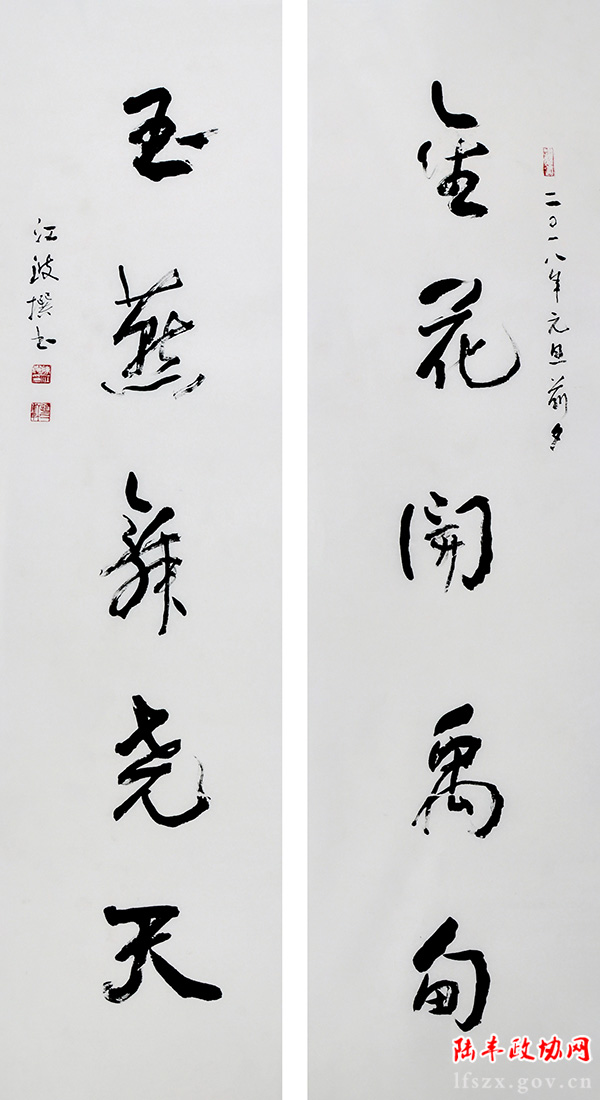 二〇一八年元旦前夕
金花開禹甸
玉燕舞尧天
江撰书
陆丰政协网
lfszx.gov.cn